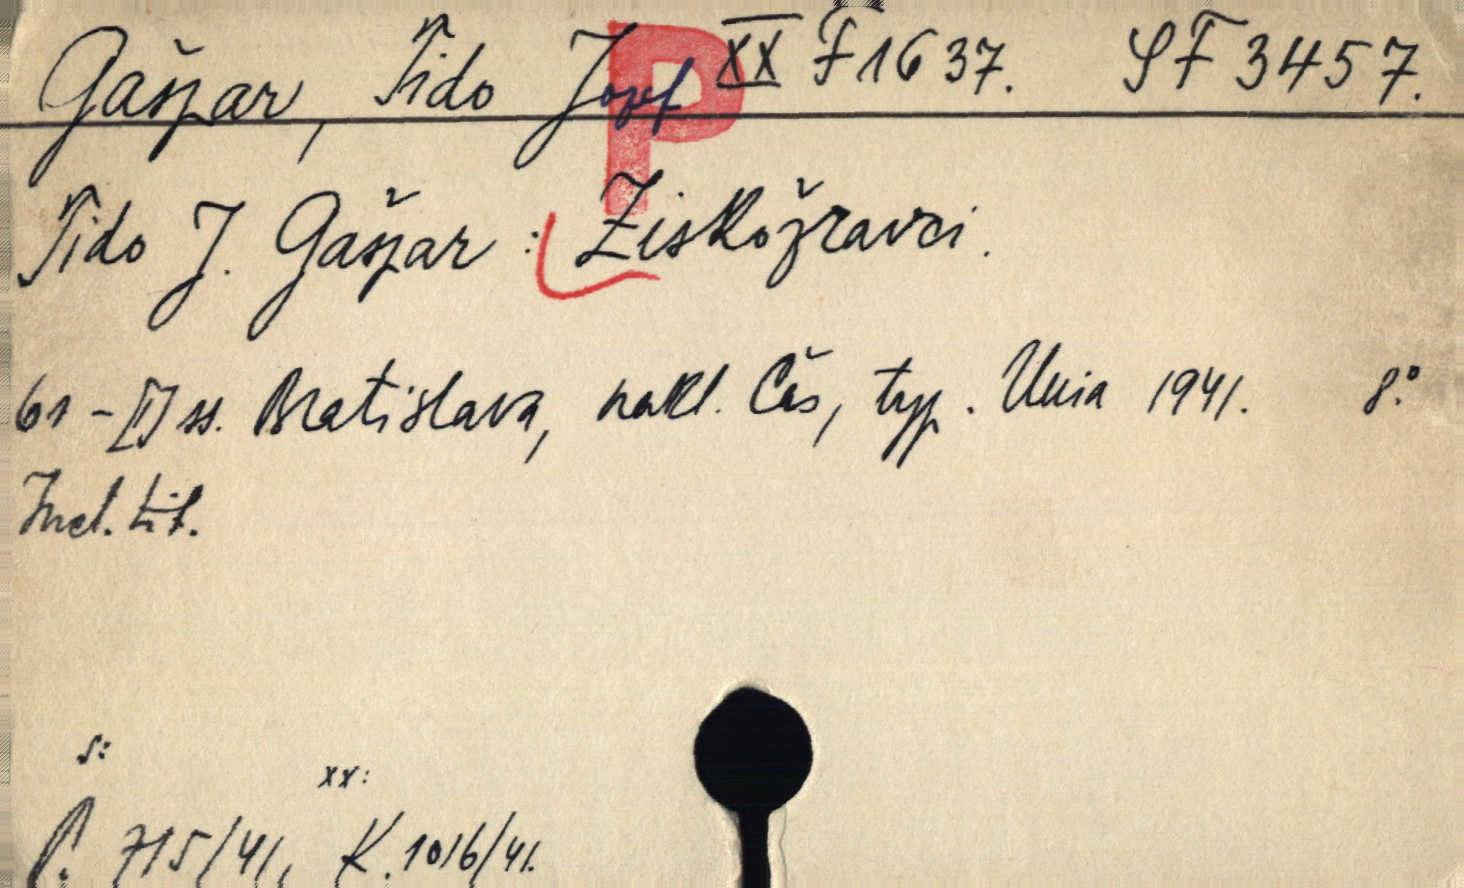 Gašpar, Tido Jozef XX F 1637. SF 3457.
P
Tido J. Gašpar: Ziskožravci.
61 - [I] ss. Bratislava, nakl. Čas, typ. Unia 1941. 8.°
Incl. tit.
S: xx:
P. 715/41, K. 1016/41.